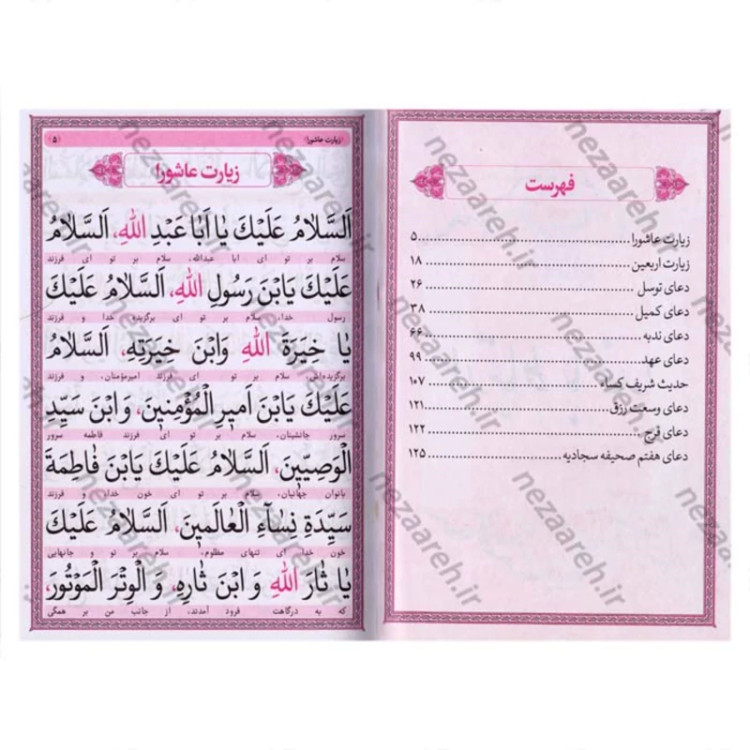 فهرست
زیارت عاشورا ........ ۵
زیارت اربعین ........ ۱۸
دعای توسل ........ ۲۶
دعای کمیل ........ ۳۸
دعای ندبه ........ ۶۶
دعای عهد ........ ۹۹
حدیث شریف کساء ........ ۱۰۷
دعای وسعت رزق ........ ۱۲۱
دعای فرج ........ ۱۲۲
دعای هفتم صحیفه سجادیه ........ ۱۲۵
زیارت عاشورا
۵
زیارت عاشورا
اَلسَّلامُ عَلَيْكَ يا اَبا عَبْدِ اللهِ، اَلسَّلامُ
سلام بر تو ای ابا عبدالله، سلام بر تو ای فرزند
عَلَيْكَ يَابْنَ رَسُولِ اللهِ، اَلسَّلامُ عَلَيْكَ
رسول خدا، سلام بر تو ای برگزیده خدا و فرزند
يا خِيَرَةَ اللهِ وَابْنَ خِيَرَتِهِ، اَلسَّلامُ
برگزیده‌اش، سلام بر تو ای فرزند امیرمؤمنان، و فرزند
عَلَيْكَ يَابْنَ اَميرِ الْمُؤْمِنينَ، وَ ابْنَ سَيِّدِ
سرور جانشینان، سلام بر تو ای فرزند فاطمه سرور
الْوَصِيّينَ، اَلسَّلامُ عَلَيْكَ يَابْنَ فاطِمَةَ
بانوان جهانیان، سلام بر تو ای خون خدا و فرزند
سَيِّدَةِ نِسآءِ الْعالَمينَ، اَلسَّلامُ عَلَيْكَ
خون خدا ای تنهای مظلوم، سلام بر تو و جانهایی
يا ثارَ اللهِ وَ ابْنَ ثارِهِ، وَ الْوِتْرَ الْمَوْتُورَ،
که به درگاهت فرود آمدند، از جانب من بر همگی
nezaareh.ir